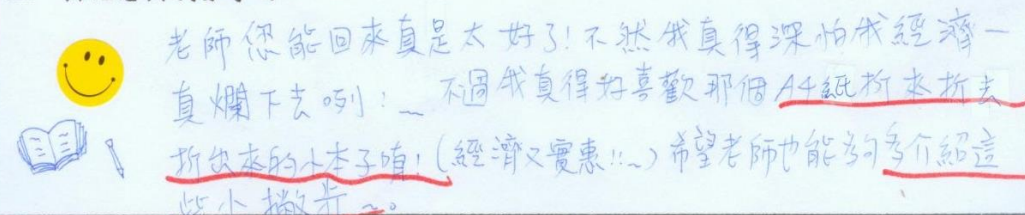 老師您能回來真是太好了!不然我真得深怕我經濟一
真爛下去咧!~ 不過我真得好喜歡那個A4紙折來折去
折出來的小本子唷!(經濟又實惠!!~)希望老師也能夠多介紹這
些小撇步~。